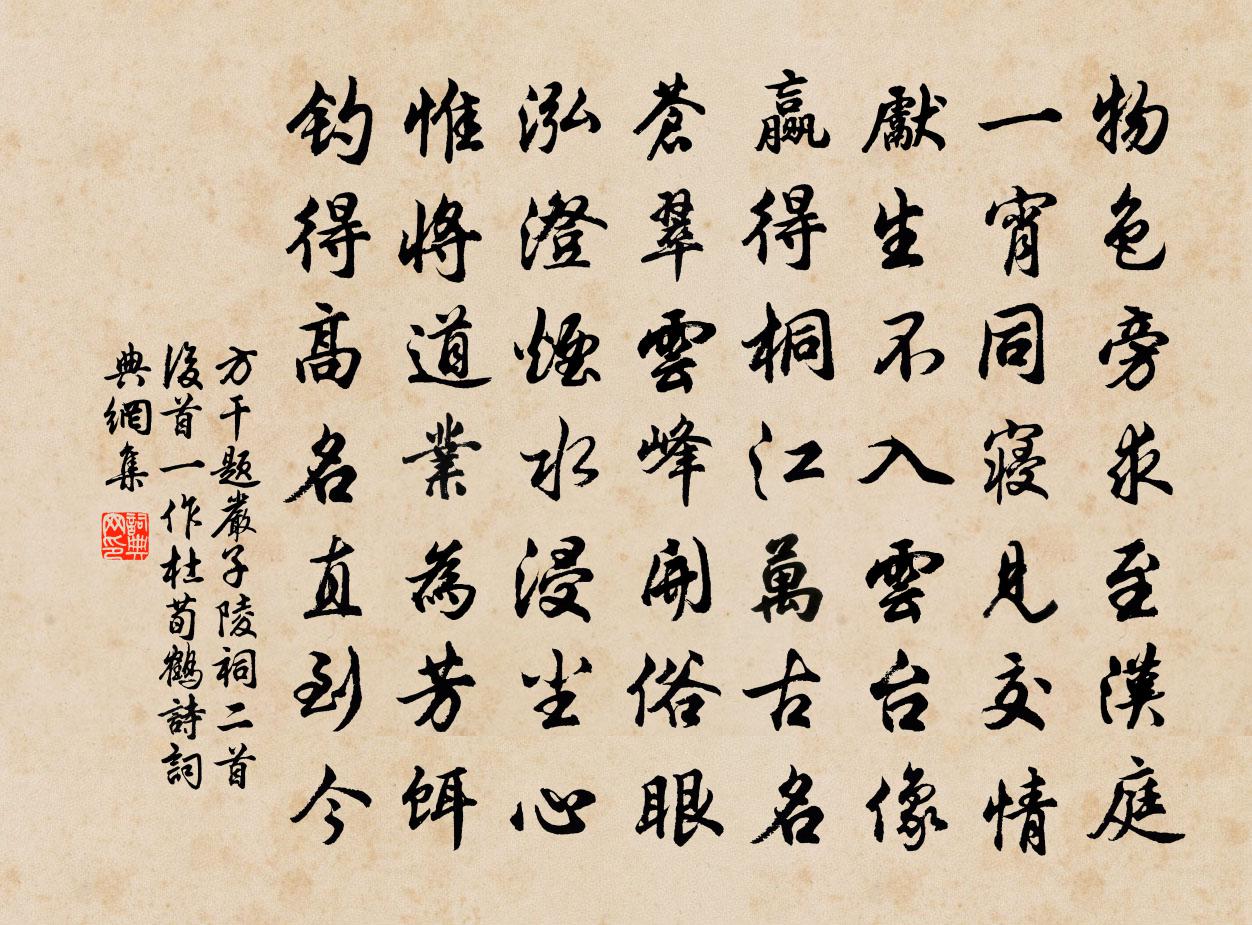 物色旁求至漢庭
一宵同寢見交情
獻生不入雲台像
贏得桐江萬古名
蒼翠雲峰開俗眼
泓澄煙水浸尘心
惟將道業為芳餌
钓得高名直到今
方干題嚴子陵祠二首
後首一作杜荀鶴詩詞
典網集
詞典
网印